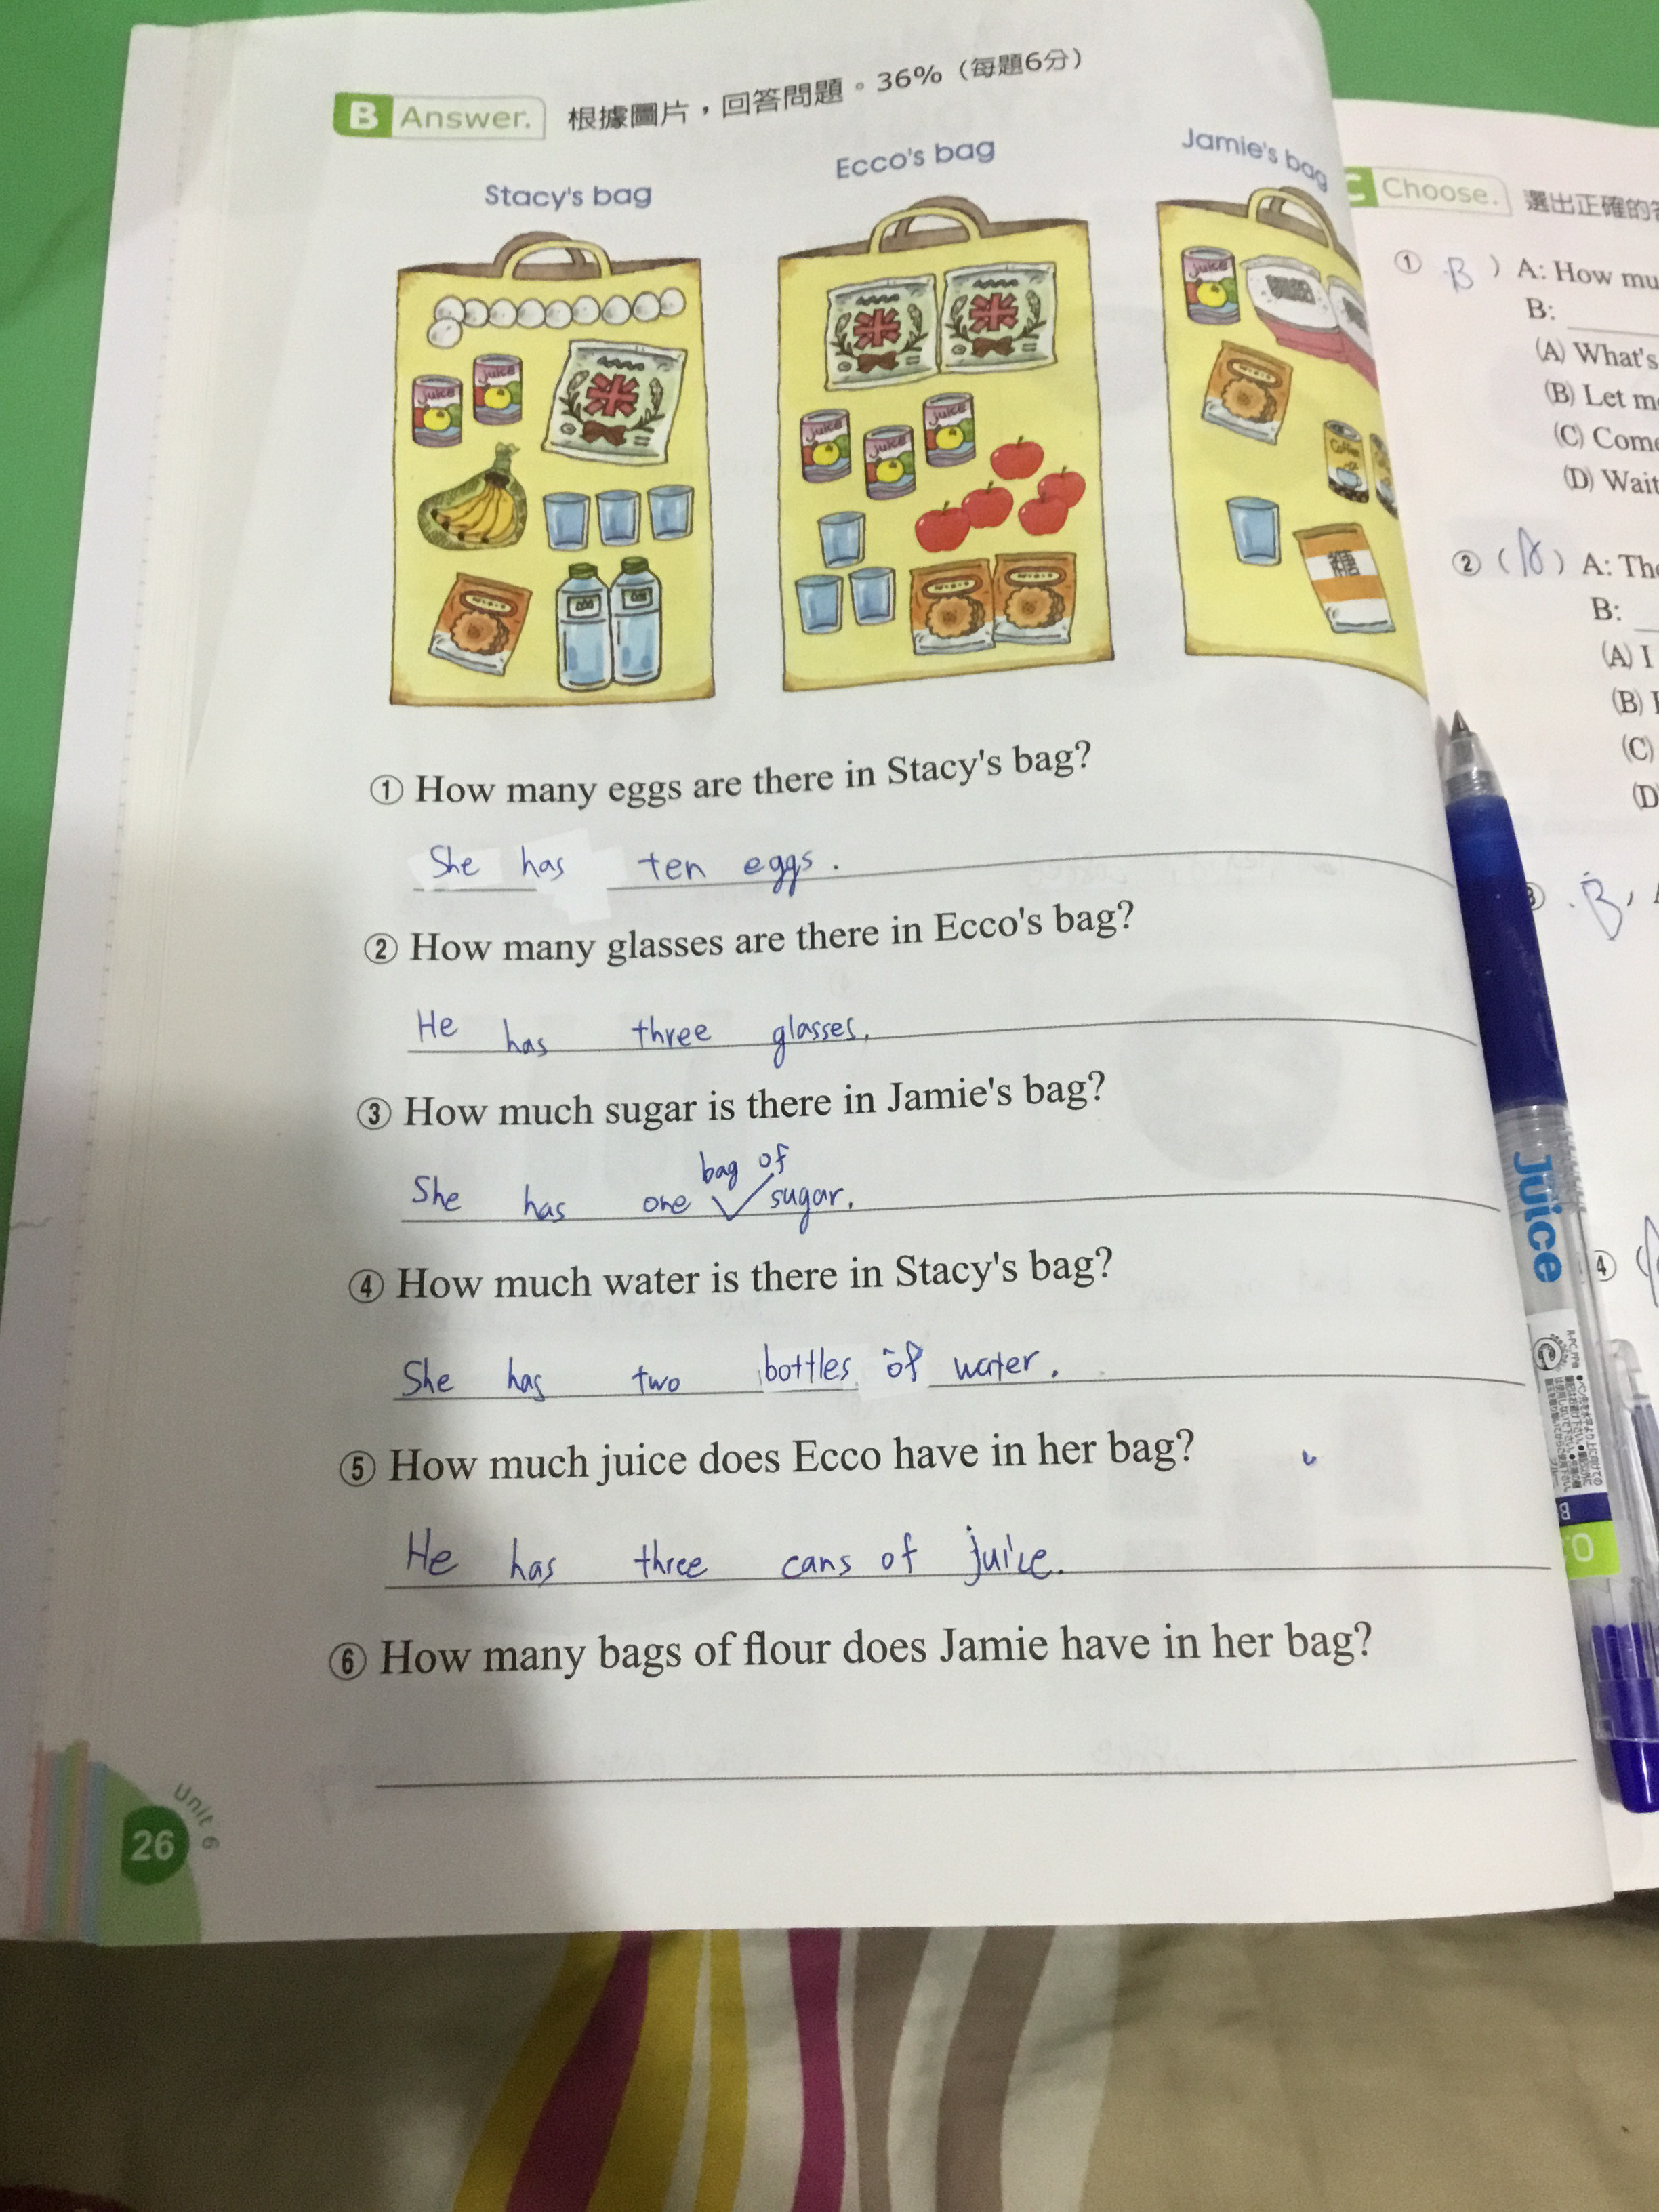 B Answer. 根據圖片，回答問題。36%（每題6分）
Stacy's bag
Ecco's bag
Jamie's bag
juice
juice
米
米
米
juice
juice
juice
juice
Coffee
糖
① How many eggs are there in Stacy's bag?
She has ten eggs.
② How many glasses are there in Ecco's bag?
He has three glasses.
③ How much sugar is there in Jamie's bag?
bag of
She has one sugar.
④ How much water is there in Stacy's bag?
She has two bottles of water.
⑤ How much juice does Ecco have in her bag?
He has three cans of juice.
⑥ How many bags of flour does Jamie have in her bag?
26
Unit 6
C Choose. 選出正確的
① B ) A: How mu
B:
(A) What's
(B) Let m
(C) Come
(D) Wait
② (A) A: Th
B:
(A) I
(B)
(C)
(D
B
④ (
Juice